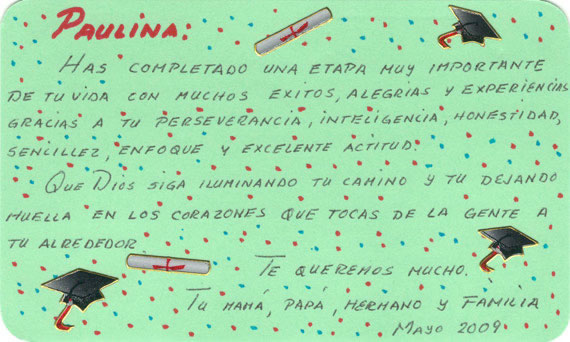 PAULINA:
HAS COMPLETADO UNA ETAPA MUY IMPORTANTE
DE TU VIDA CON MUCHOS EXITOS, ALEGRIAS Y EXPERIENCIAS
GRACIAS A TU PERSEVERANCIA, INTELIGENCIA, HONESTIDAD,
SENCILLEZ, ENFOQUE Y EXCELENTE ACTITUD.
QUE DIOS SIGA ILUMINANDO TU CAMINO Y TU DEJANDO
HUELLA EN LOS CORAZONES QUE TOCAS DE LA GENTE A
TU ALREDEDOR
TE QUEREMOS MUCHO.
TU MAMÁ, PAPÁ, HERMANO Y FAMILIA
MAYO 2009